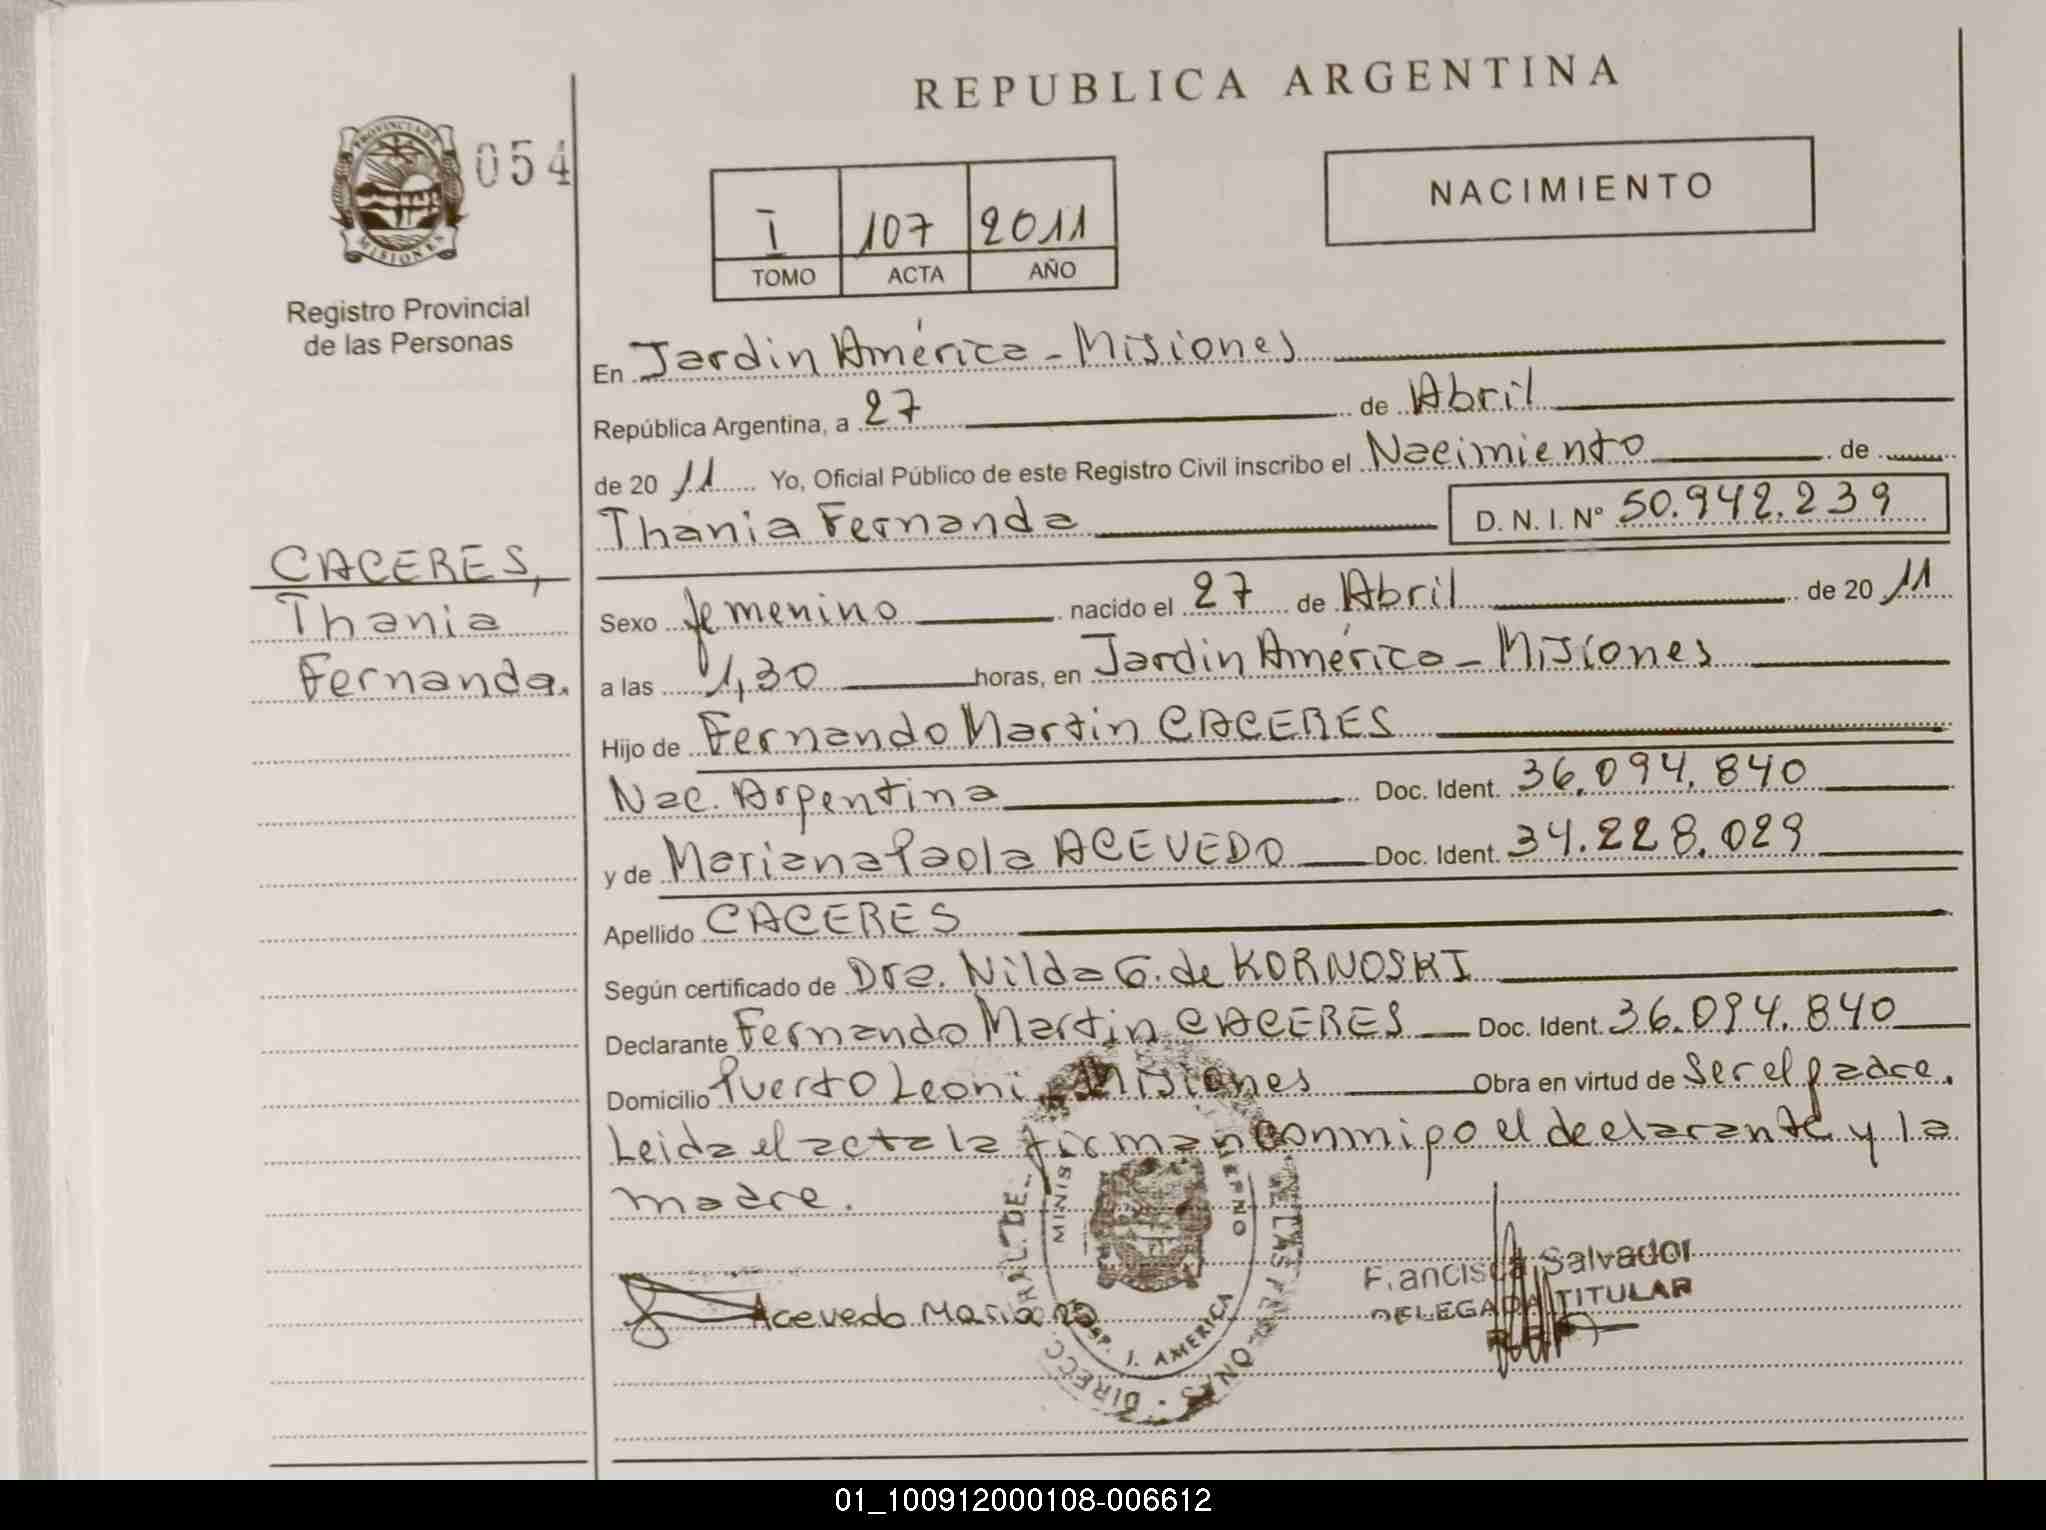 REPUBLICA ARGENTINA
PROVINCIA DE
MISIONES
054
Registro Provincial
de las Personas
I 107 2011
TOMO ACTA AÑO
NACIMIENTO
En Jardin América - Misiones
República Argentina, a 27 de Abril
de 20 11 Yo, Oficial Público de este Registro Civil inscribo el Nacimiento de
Thania Fernanda D. N. I. Nº 50.942.239
CACERES,
Thania
Fernanda.
Sexo femenino nacido el 27 de Abril de 20 11
a las 1,30 horas, en Jardin América - Misiones
Hijo de Fernando Martin CACERES
Nac. Argentina Doc. Ident. 36.094.840
y de Mariana Paola ACEVEDO Doc. Ident. 34.228.029
Apellido CACERES
Según certificado de Dra. Nilda G. de KORNOSKI
Declarante Fernando Martin CACERES Doc. Ident. 36.094.840
Domicilio Puerto Leoni - Misiones Obra en virtud de ser el padre.
Leida el acta la firman conmigo el declarante y la
madre.
Acevedo Mariana
J. AMERICA
Francisca Salvador
DELEGADA TITULAR
01_100912000108-006612